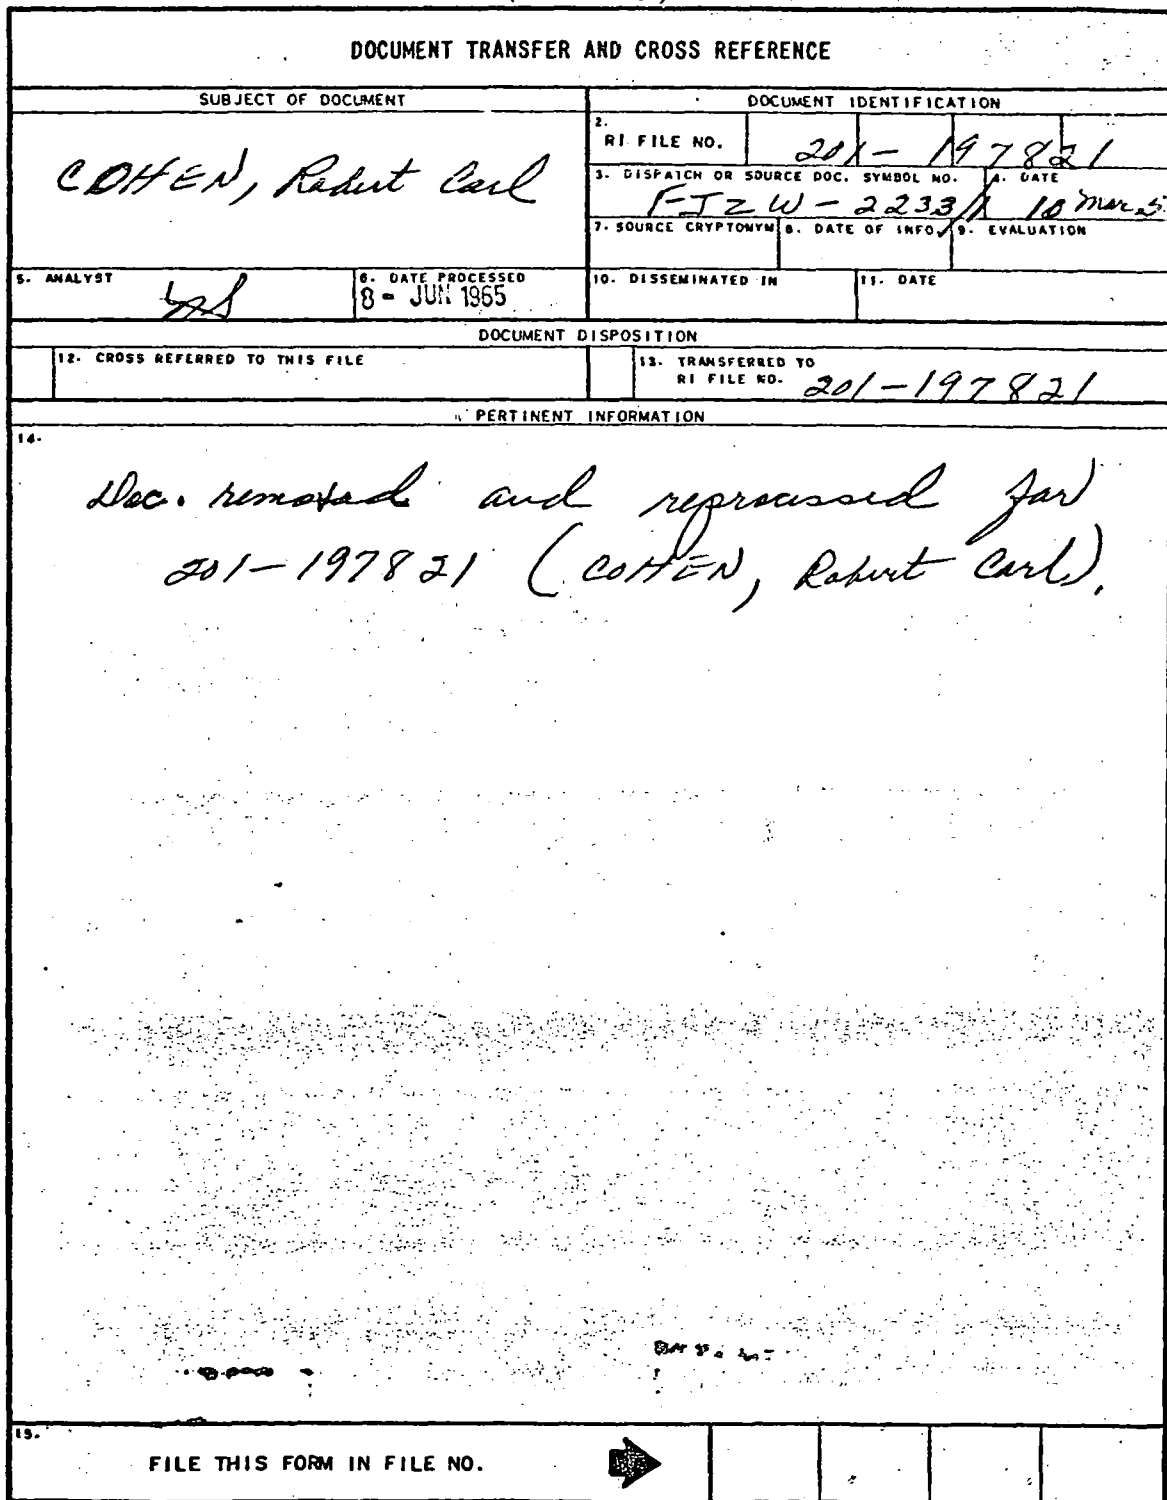 DOCUMENT TRANSFER AND CROSS REFERENCE
SUBJECT OF DOCUMENT
DOCUMENT IDENTIFICATION
COHEN, Robert Carl
2.
RI FILE NO.
201-197821
3. DISPATCH OR SOURCE DOC. SYMBOL NO.
4. DATE
FJZW-2233
10 Mar
7. SOURCE CRYPTONYM
8. DATE OF INFO.
9. EVALUATION
5. ANALYST
6. DATE PROCESSED
8 - JUN 1965
10. DISSEMINATED IN
11. DATE
DOCUMENT DISPOSITION
12. CROSS REFERRED TO THIS FILE
13. TRANSFERRED TO
RI FILE NO.
201-197821
PERTINENT INFORMATION
14.
Doc. removed and reprocessed for
201-197821 (COHEN, Robert Carl).
15.
FILE THIS FORM IN FILE NO.